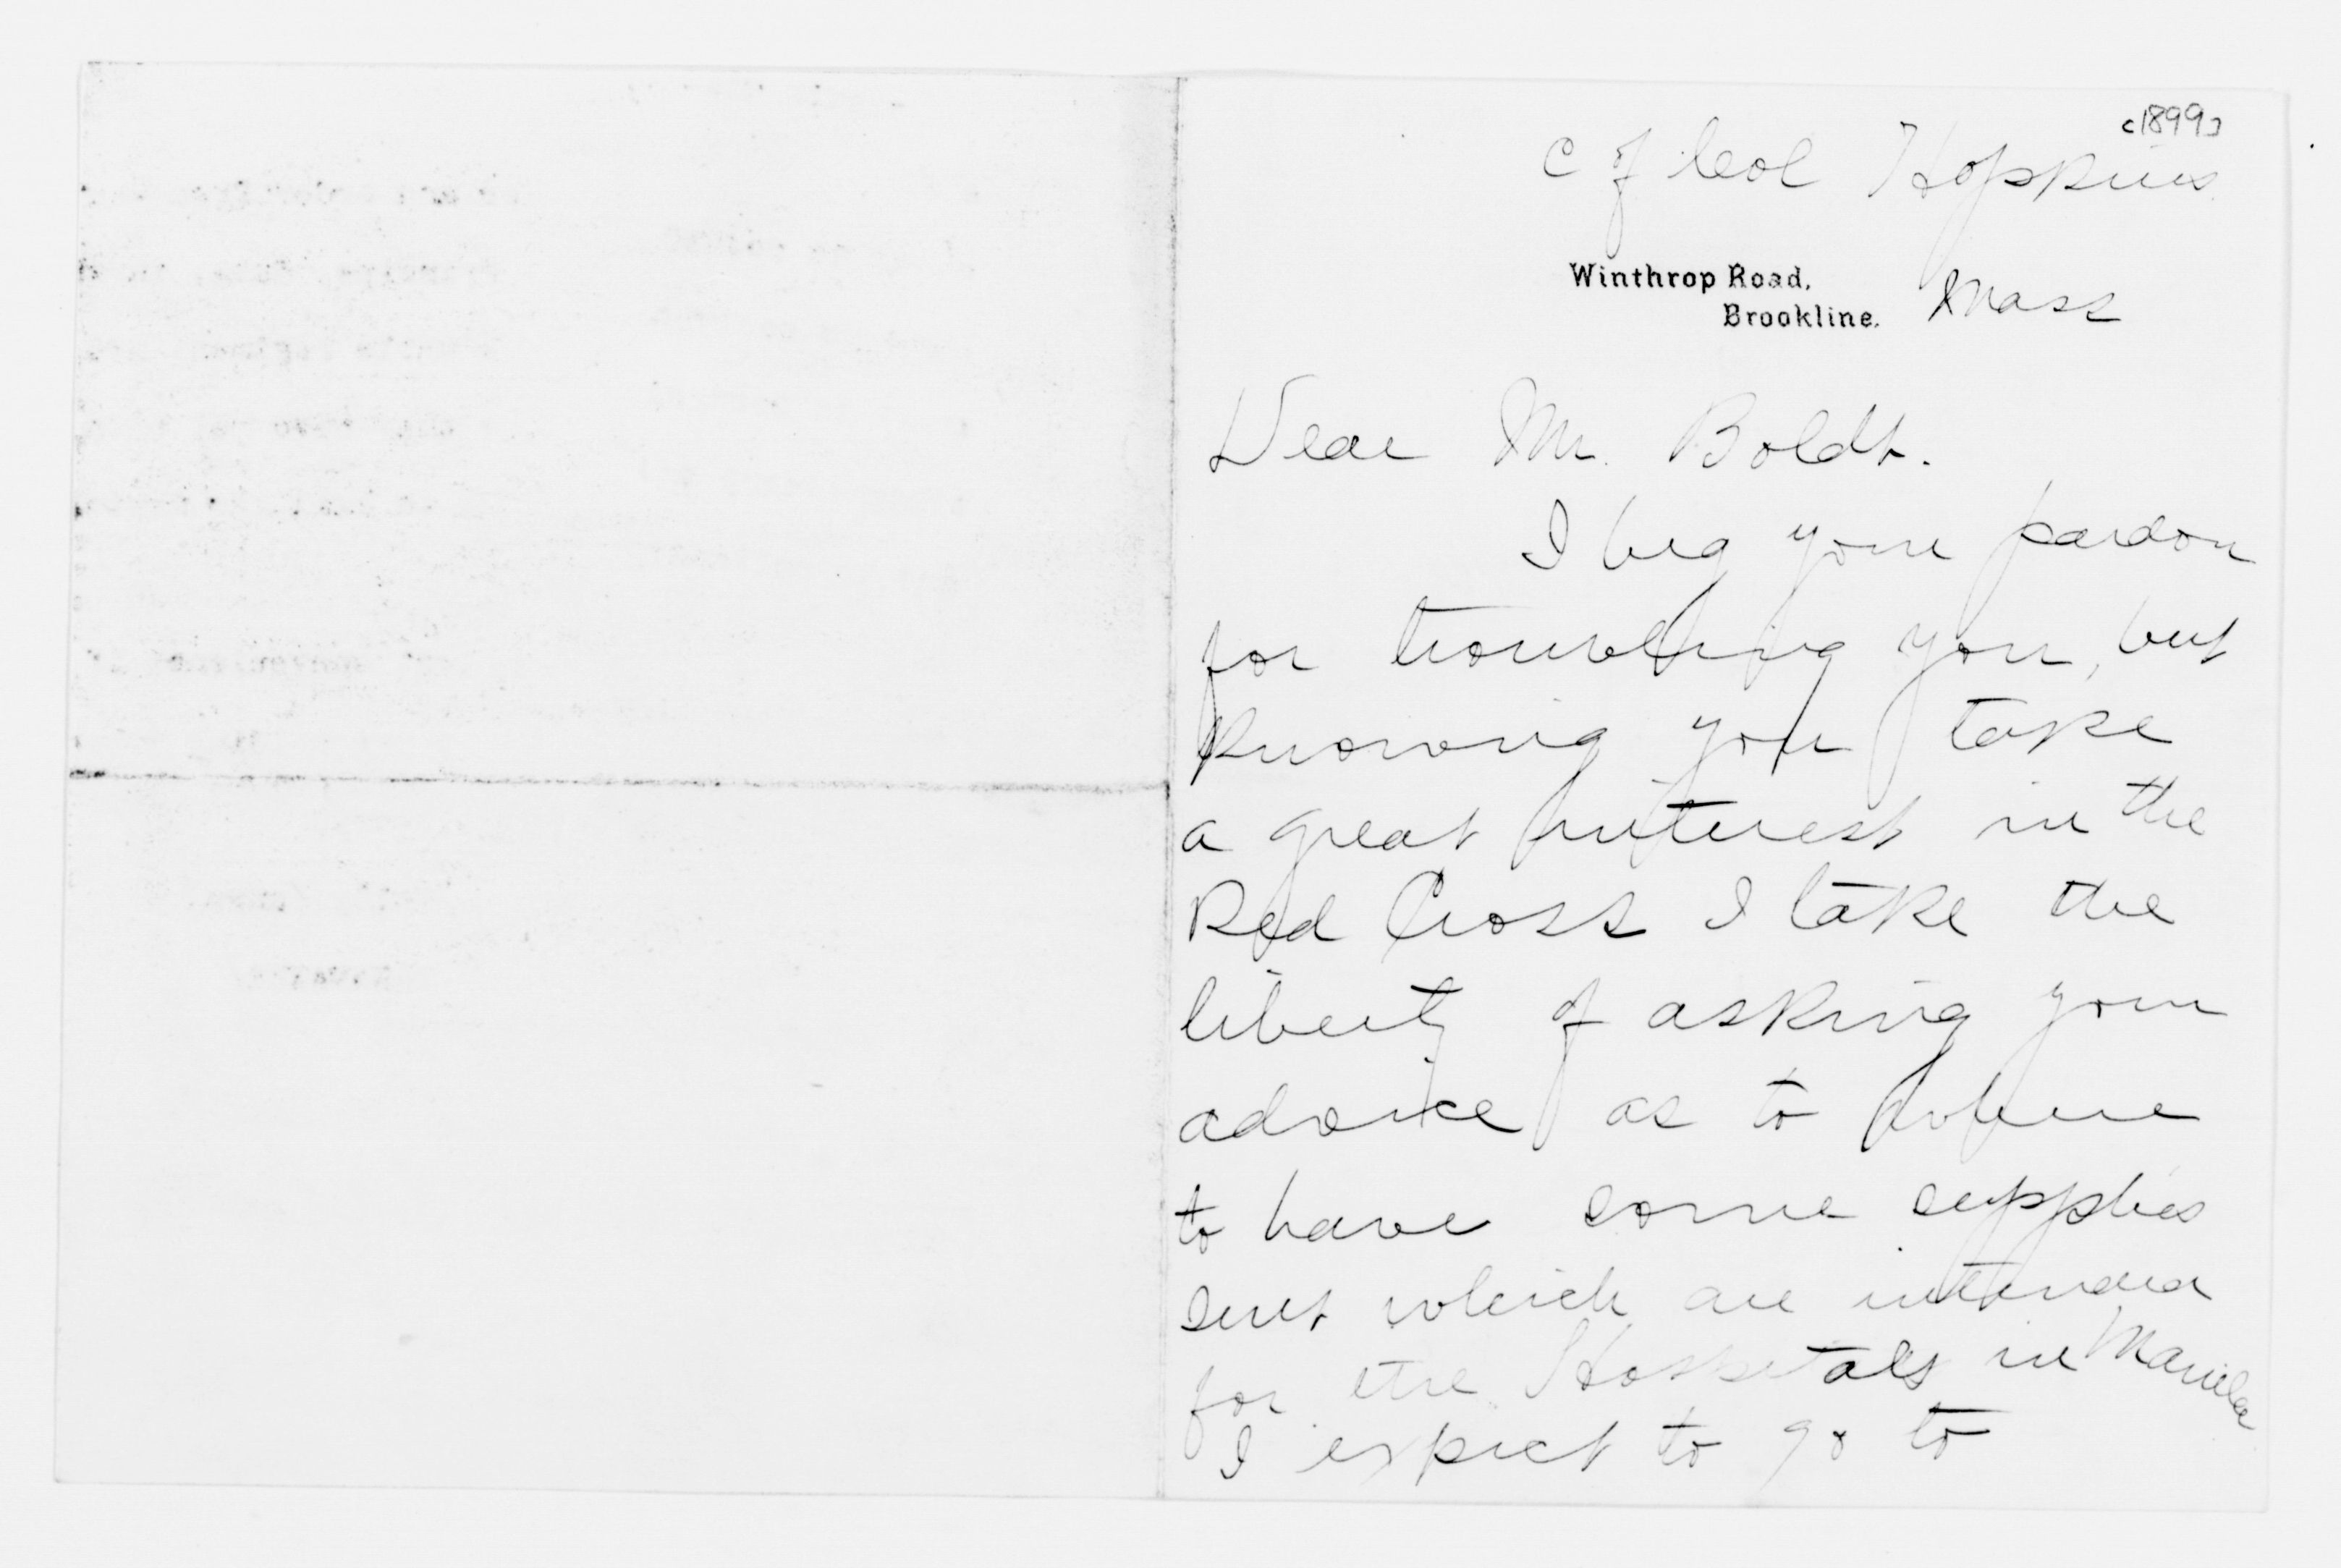 [1899]
c of Col Hopkins
Winthrop Road,
Brookline. Mass
Dear Mr. Boldt.
I beg your pardon
for troubling you, but
knowing you take
a great interest in the
Red Cross I take the
liberty of asking your
advice as to where
to have some supplies
sent which are intended
for the Hospitals in Manila
I expect to go to